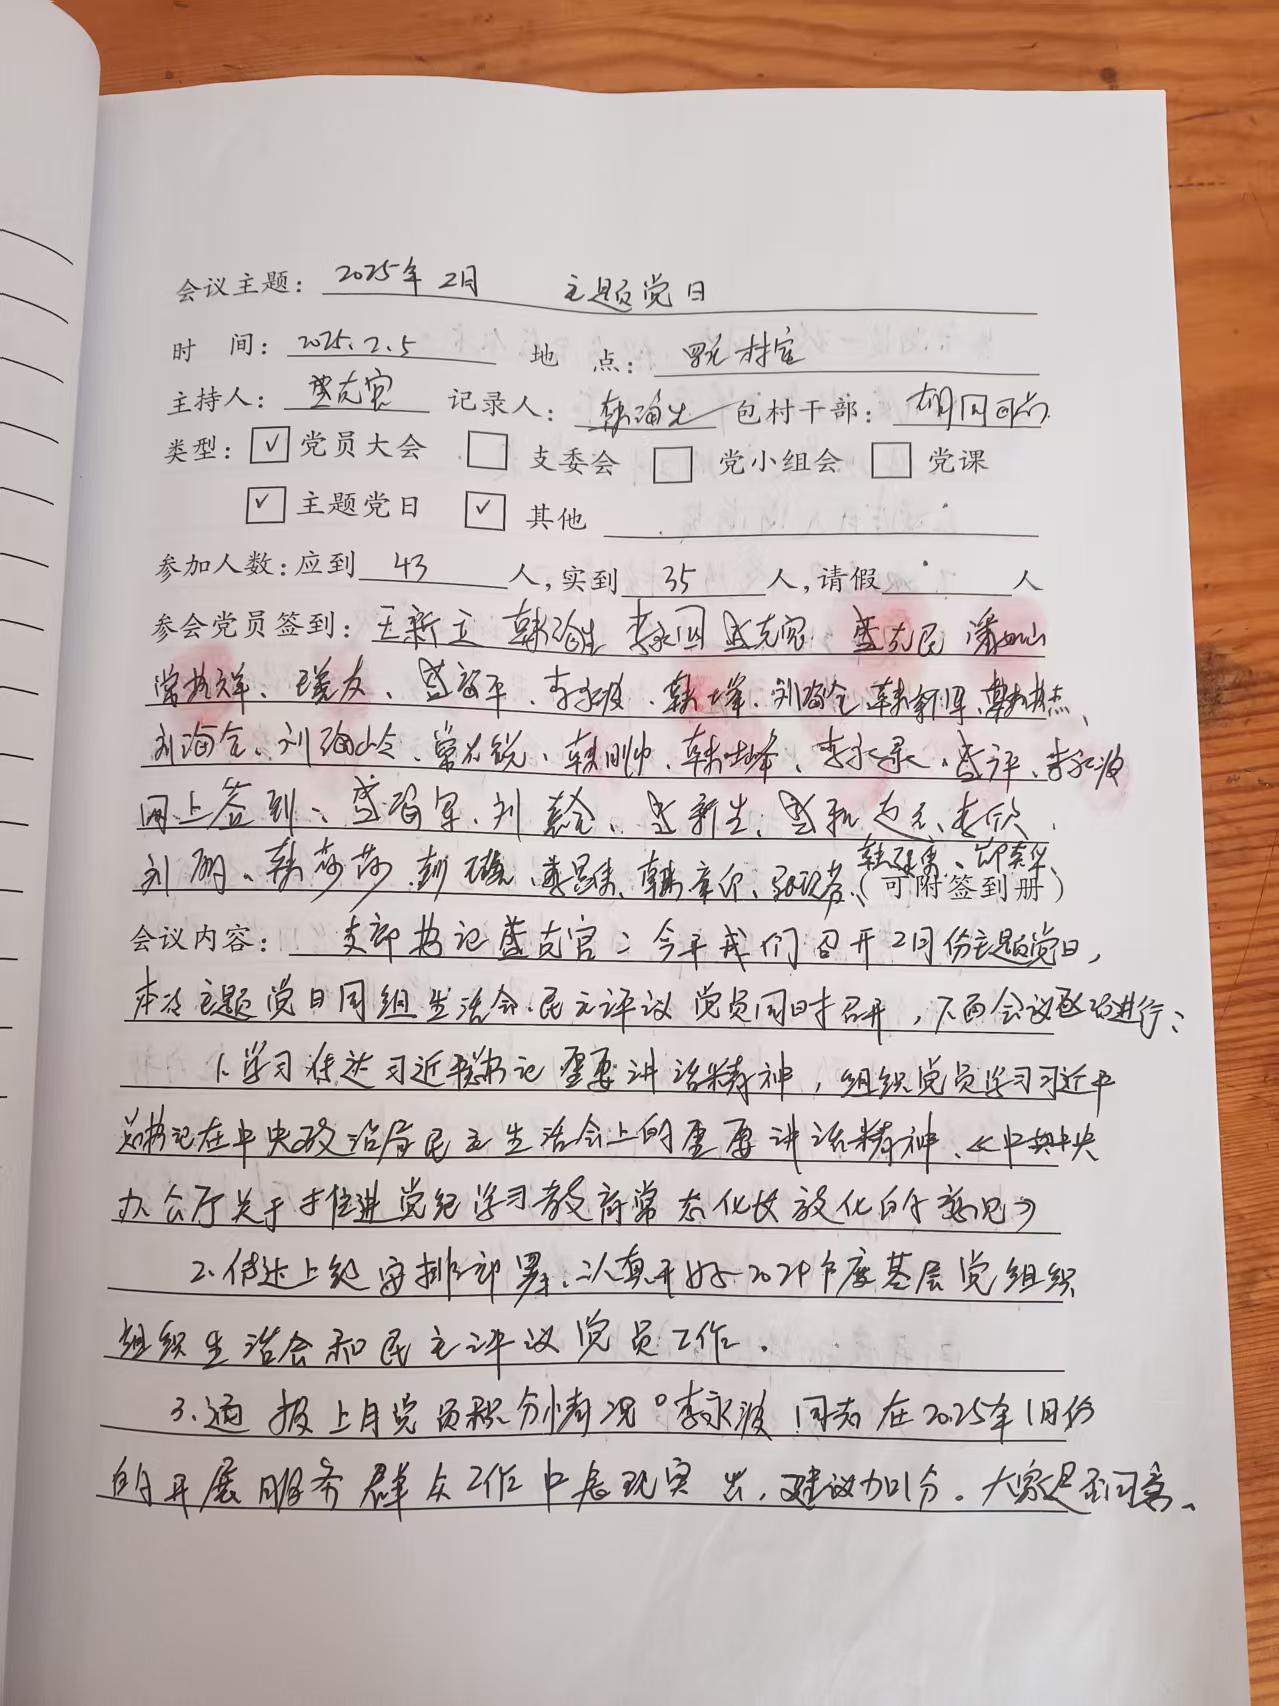 会议主题: 2025年2月 主题党日
时 间: 2025.2.5 地 点: 村室
主持人: 盛克宽 记录人: 韩海生 包村干部: 胡同尚
类型: ✓ 党员大会 支委会 党小组会 党课
✓ 主题党日 ✓ 其他
参加人数:应到 43 人,实到 35 人,请假 人
参会党员签到: 王新立 韩海生 李永国 盛克宽 盛克民
李永波、刘海全、韩新军、
刘海全、刘海岭、韩刚帅、韩峰、李永录、盛评、李永波
网上签到: 盛海军、刘 盛新生、李欣、
刘朋、韩莎莎、(可附签到册)
会议内容: 支部书记盛克宽:今天我们召开2月份主题党日,
本次主题党日同组织生活会、民主评议党员同时召开,下面会议逐项进行:
1、学习传达习近平总书记重要讲话精神,组织党员学习习近平
总书记在中央政治局民主生活会上的重要讲话精神、《中共中央
办公厅关于推进党纪学习教育常态化长效化的意见》
2、传达上级安排部署、认真开好2024年度基层党组织
组织生活会和民主评议党员工作.
3、通报上月党员积分情况。李永波同志在2025年1月份
的开展服务群众工作中表现突出,建议加1分。大家是否同意、